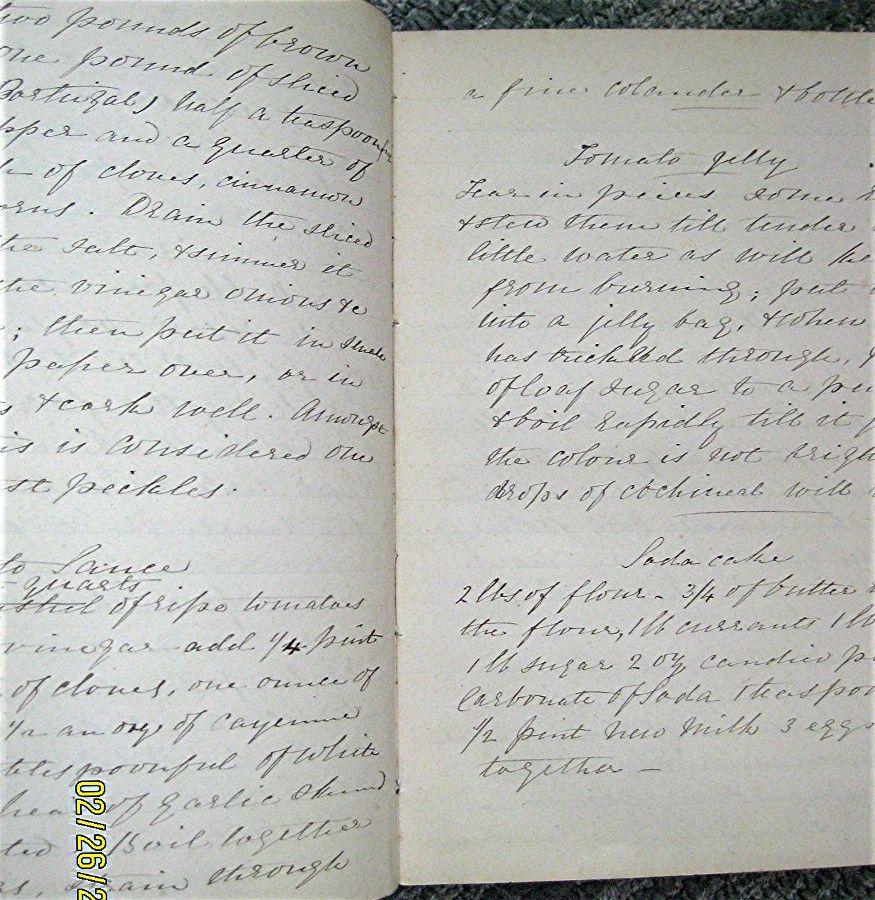 two pounds of brown
one pound of sliced
Portugal) half a teaspoonful
and a quarter of
of cloves, cinnamon
Drain the sliced
the salt, & simmer it
the vinegar onions &c
; then put it in
paper over, or in
& cork well. Amongst
is is considered one
st pickles.
to Sauce
quarts
of ripe tomatoes
vinegar add 1/4 pint
of cloves, one ounce of
1/2 an ozs of cayenne
of white
head of garlic skinned
Boil together
strain through
02/26/2
a fine colander & bottle
Tomato jelly
Tear in pieces some
& stew them till tender
little water as will ke
from burning; put
into a jelly bag, & when
has trickled through,
of loaf sugar to a
& boil rapidly till it
the colour is not brigh
drops of cochineal will
Soda cake
2 lbs of flour - 3/4 of butter
the flour, 1 lb currants 1 lb
1 lb sugar 2 oz candied p
Carbonate of Soda 1 teaspoo
1/2 pint new milk 3 eggs
together -